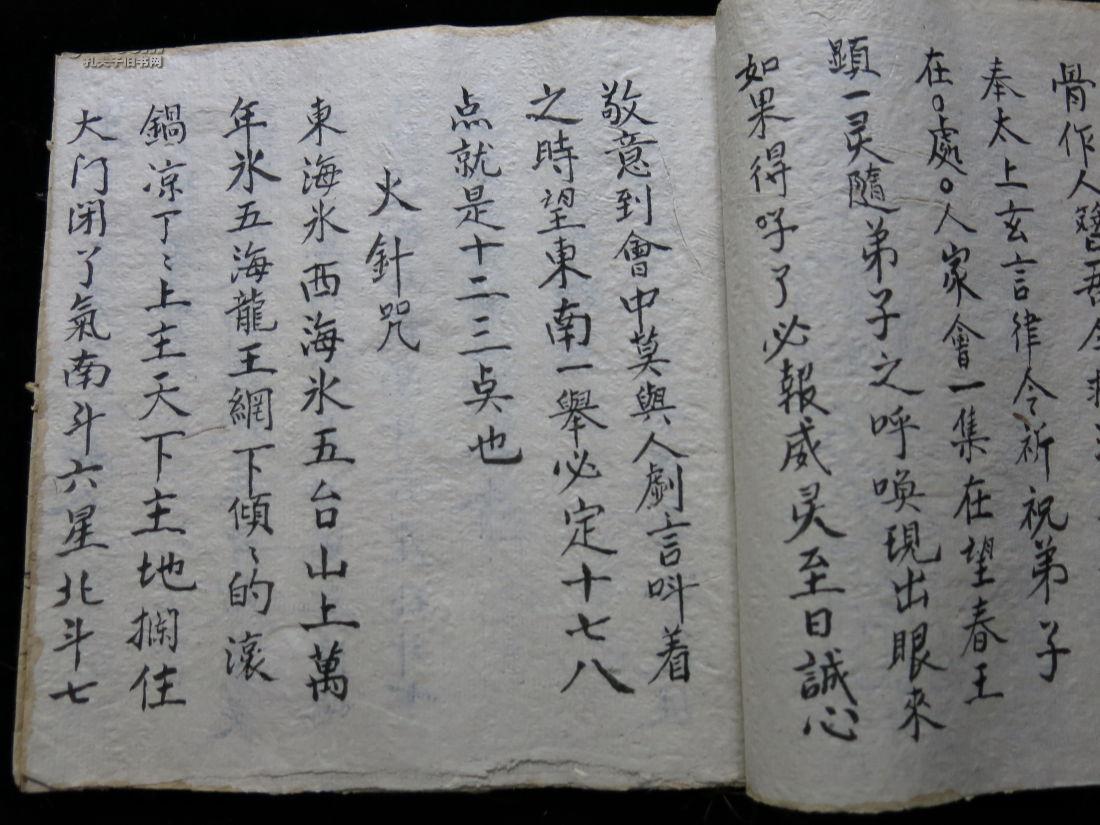 骨作人
奉太上玄言律令祈祝弟子
在。處。人家會一集在望春王
顕一灵隨弟子之呼喚現出眼來
如果得呼了必報威灵至日誠心
敬意到會中莫與人劇言呌着
之時望東南一舉必定十七八
点就是十二三点也
火針咒
東海氷西海氷五台山上萬
年氷五海龍王網下傾〻的滚
鍋凉了〻上主天下主地攔住
大门闭了氣南斗六星北斗七
孔夫子旧书网